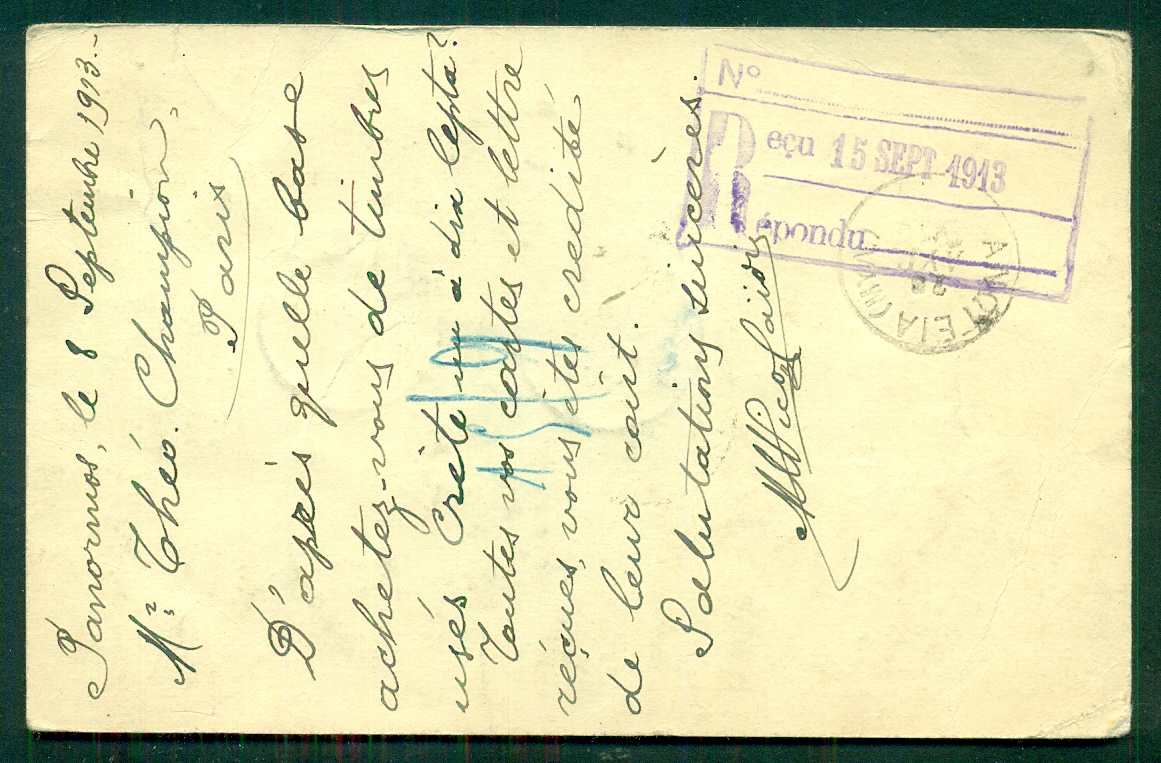 Panormos, le 8 Septembre 1913.-
Mr. Théo. Champion,
Paris
D'après quelle base
achetez-vous de timbres
usés Crète un à dix lepta?
Toutes vos cartes et lettre
réçues, vous êtes credité
de leur coût.
Salutations sincères.
No
Reçu 15 SEPT 1913
Répondu